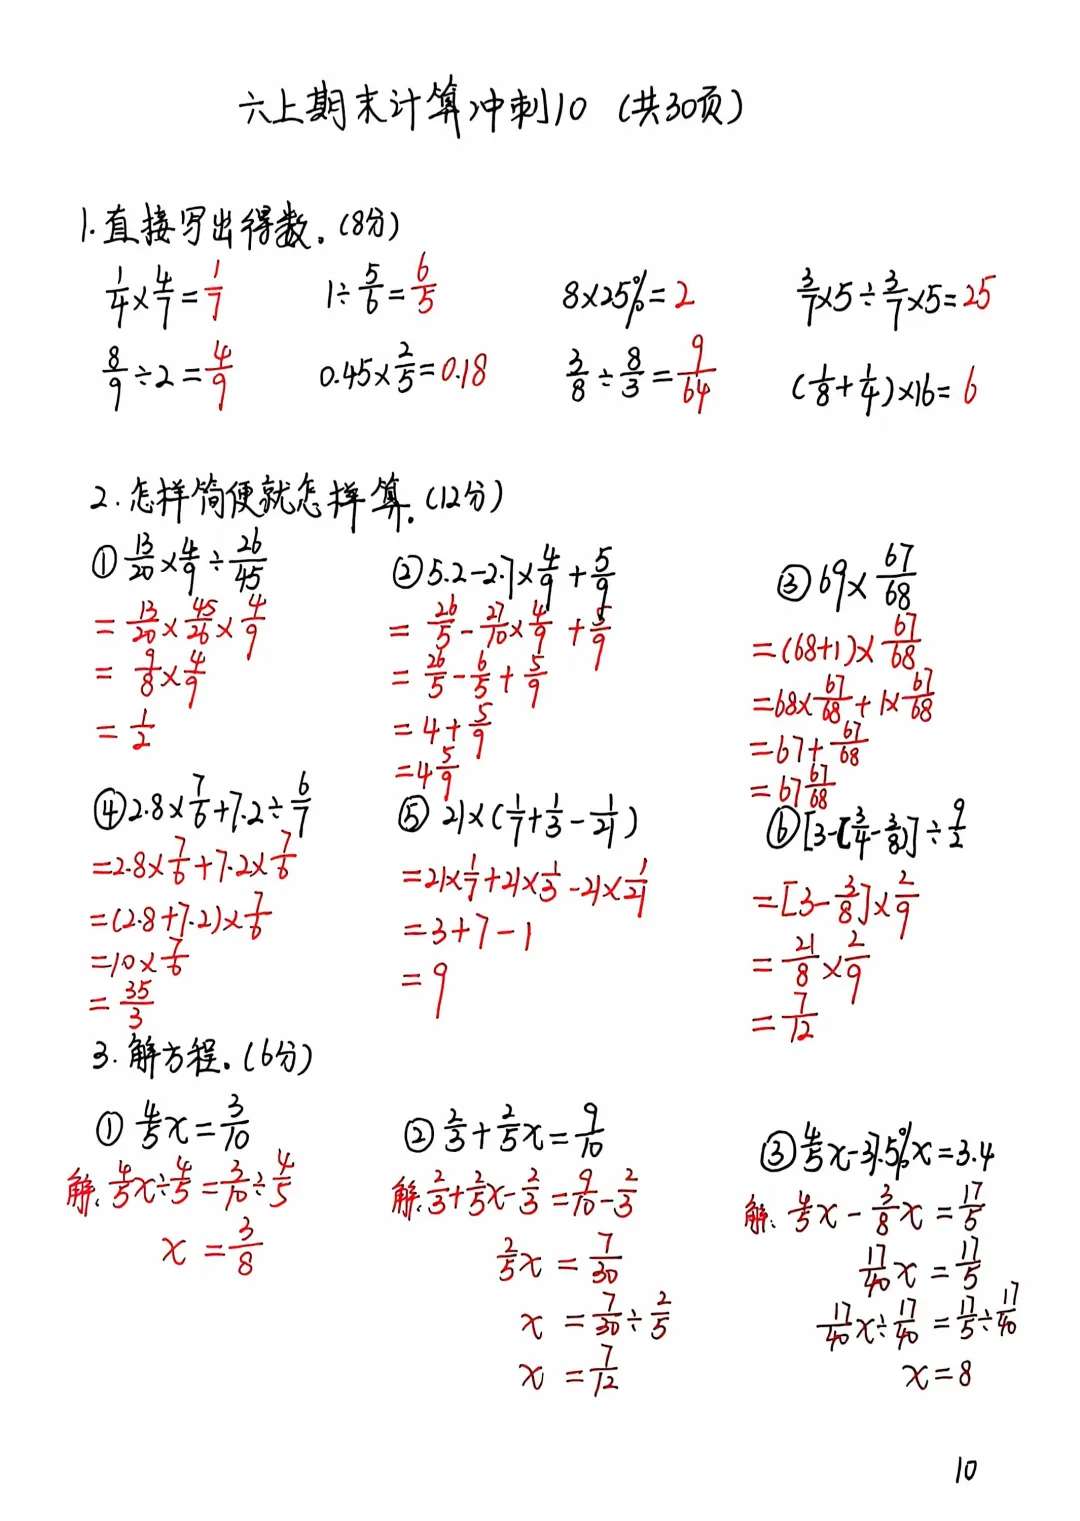 六上期末计算冲刺10 (共30页)
1.直接写出得数。(8分)
1/4×4/7=1/7 1÷5/6=6/5 8×25%=2 3/7×5÷3/7×5=25
8/9÷2=4/9 0.45×2/5=0.18 3/8÷8/3=9/64 (1/8+1/4)×16=6
2.怎样简便就怎样算。(12分)
①13/20×4/9÷26/45
=13/20×45/26×4/9
=9/8×4/9
=1/2
②5.2-2.7×4/9+5/9
=26/5-27/10×4/9+5/9
=26/5-6/5+5/9
=4+5/9
=4 5/9
③69×67/68
=(68+1)×67/68
=68×67/68+1×67/68
=67+67/68
=67 67/68
④2.8×7/6+7.2÷6/7
=2.8×7/6+7.2×7/6
=(2.8+7.2)×7/6
=10×7/6
=35/3
⑤21×(1/7+1/3-1/21)
=21×1/7+21×1/3-21×1/21
=3+7-1
=9
⑥[3-(3/4-3/8)]÷9/2
=[3-3/8]×2/9
=21/8×2/9
=7/12
3.解方程。(6分)
①4/5x=3/10
解:4/5x÷4/5=3/10÷4/5
x=3/8
②2/3+2/5x=9/10
解:2/3+2/5x-2/3=9/10-2/3
2/5x=7/30
x=7/30÷2/5
x=7/12
③4/5x-37.5%x=3.4
解:4/5x-3/8x=17/5
17/40x=17/5
17/40x÷17/40=17/5÷17/40
x=8
10